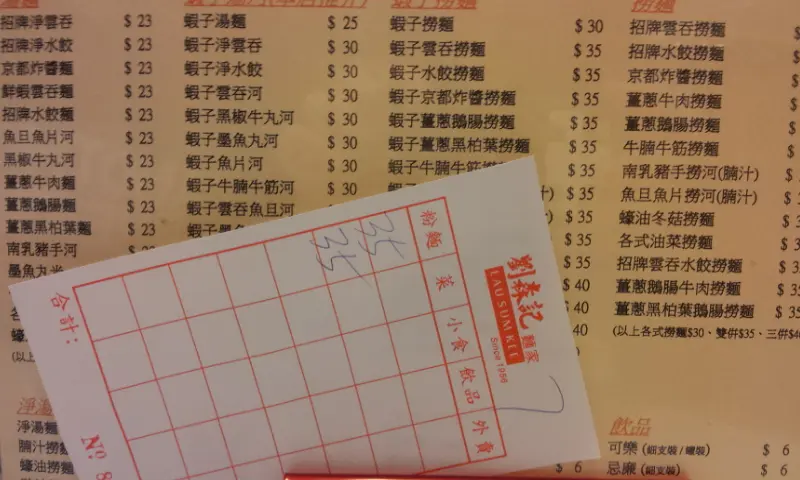 招牌淨雲吞 $ 23
招牌淨水餃 $ 23
京都炸醬麵 $ 23
鮮蝦雲吞麵 $ 23
招牌水餃麵 $ 23
魚旦魚片河 $ 23
黑椒牛丸河 $ 23
薑蔥牛肉麵 $ 23
薑蔥鵝腸麵 $ 23
薑蔥黑柏葉麵 $ 23
南乳豬手河 $ 23
墨魚丸米
(以上
蝦子湯麵 $ 25
蝦子淨雲吞 $ 30
蝦子淨水餃 $ 30
蝦子雲吞河 $ 30
蝦子黑椒牛丸河 $ 30
蝦子墨魚丸河 $ 30
蝦子魚片河 $ 30
蝦子牛腩牛筋河 $ 30
蝦子雲吞魚旦河 $ 30
蝦子撈麵 $ 30
蝦子雲吞撈麵 $ 35
蝦子水餃撈麵 $ 35
蝦子京都炸醬撈麵 $ 35
蝦子薑蔥鵝腸撈麵 $ 35
蝦子薑蔥黑柏葉撈麵 $ 35
蝦子牛腩牛筋撈麵 $ 35
$ 35
$ 35
$ 35
$ 35
$ 40
40
撈麵
招牌雲吞撈麵
招牌水餃撈麵
京都炸醬撈麵
薑蔥牛肉撈麵
薑蔥鵝腸撈麵
牛腩牛筋撈麵
南乳豬手撈河(腩汁)
魚旦魚片撈河(腩汁)
蠔油冬菇撈麵
各式油菜撈麵
招牌雲吞水餃撈麵
薑蔥鵝腸牛肉撈麵
薑蔥黑柏葉鵝腸撈麵
(以上各式撈麵$30、雙併$35、三併$40
飲品
可樂 (細支裝 / 罐裝) $ 6
忌廉 (細支裝) $ 6
$ 6
淨湯
淨湯麵
腩汁撈麵
蠔油撈麵
劉森記 麵家
LAU SUM KEE
Since 1956
粉麵 菜 小食 飲品 外賣
35
35
7
合計:
Nº 8